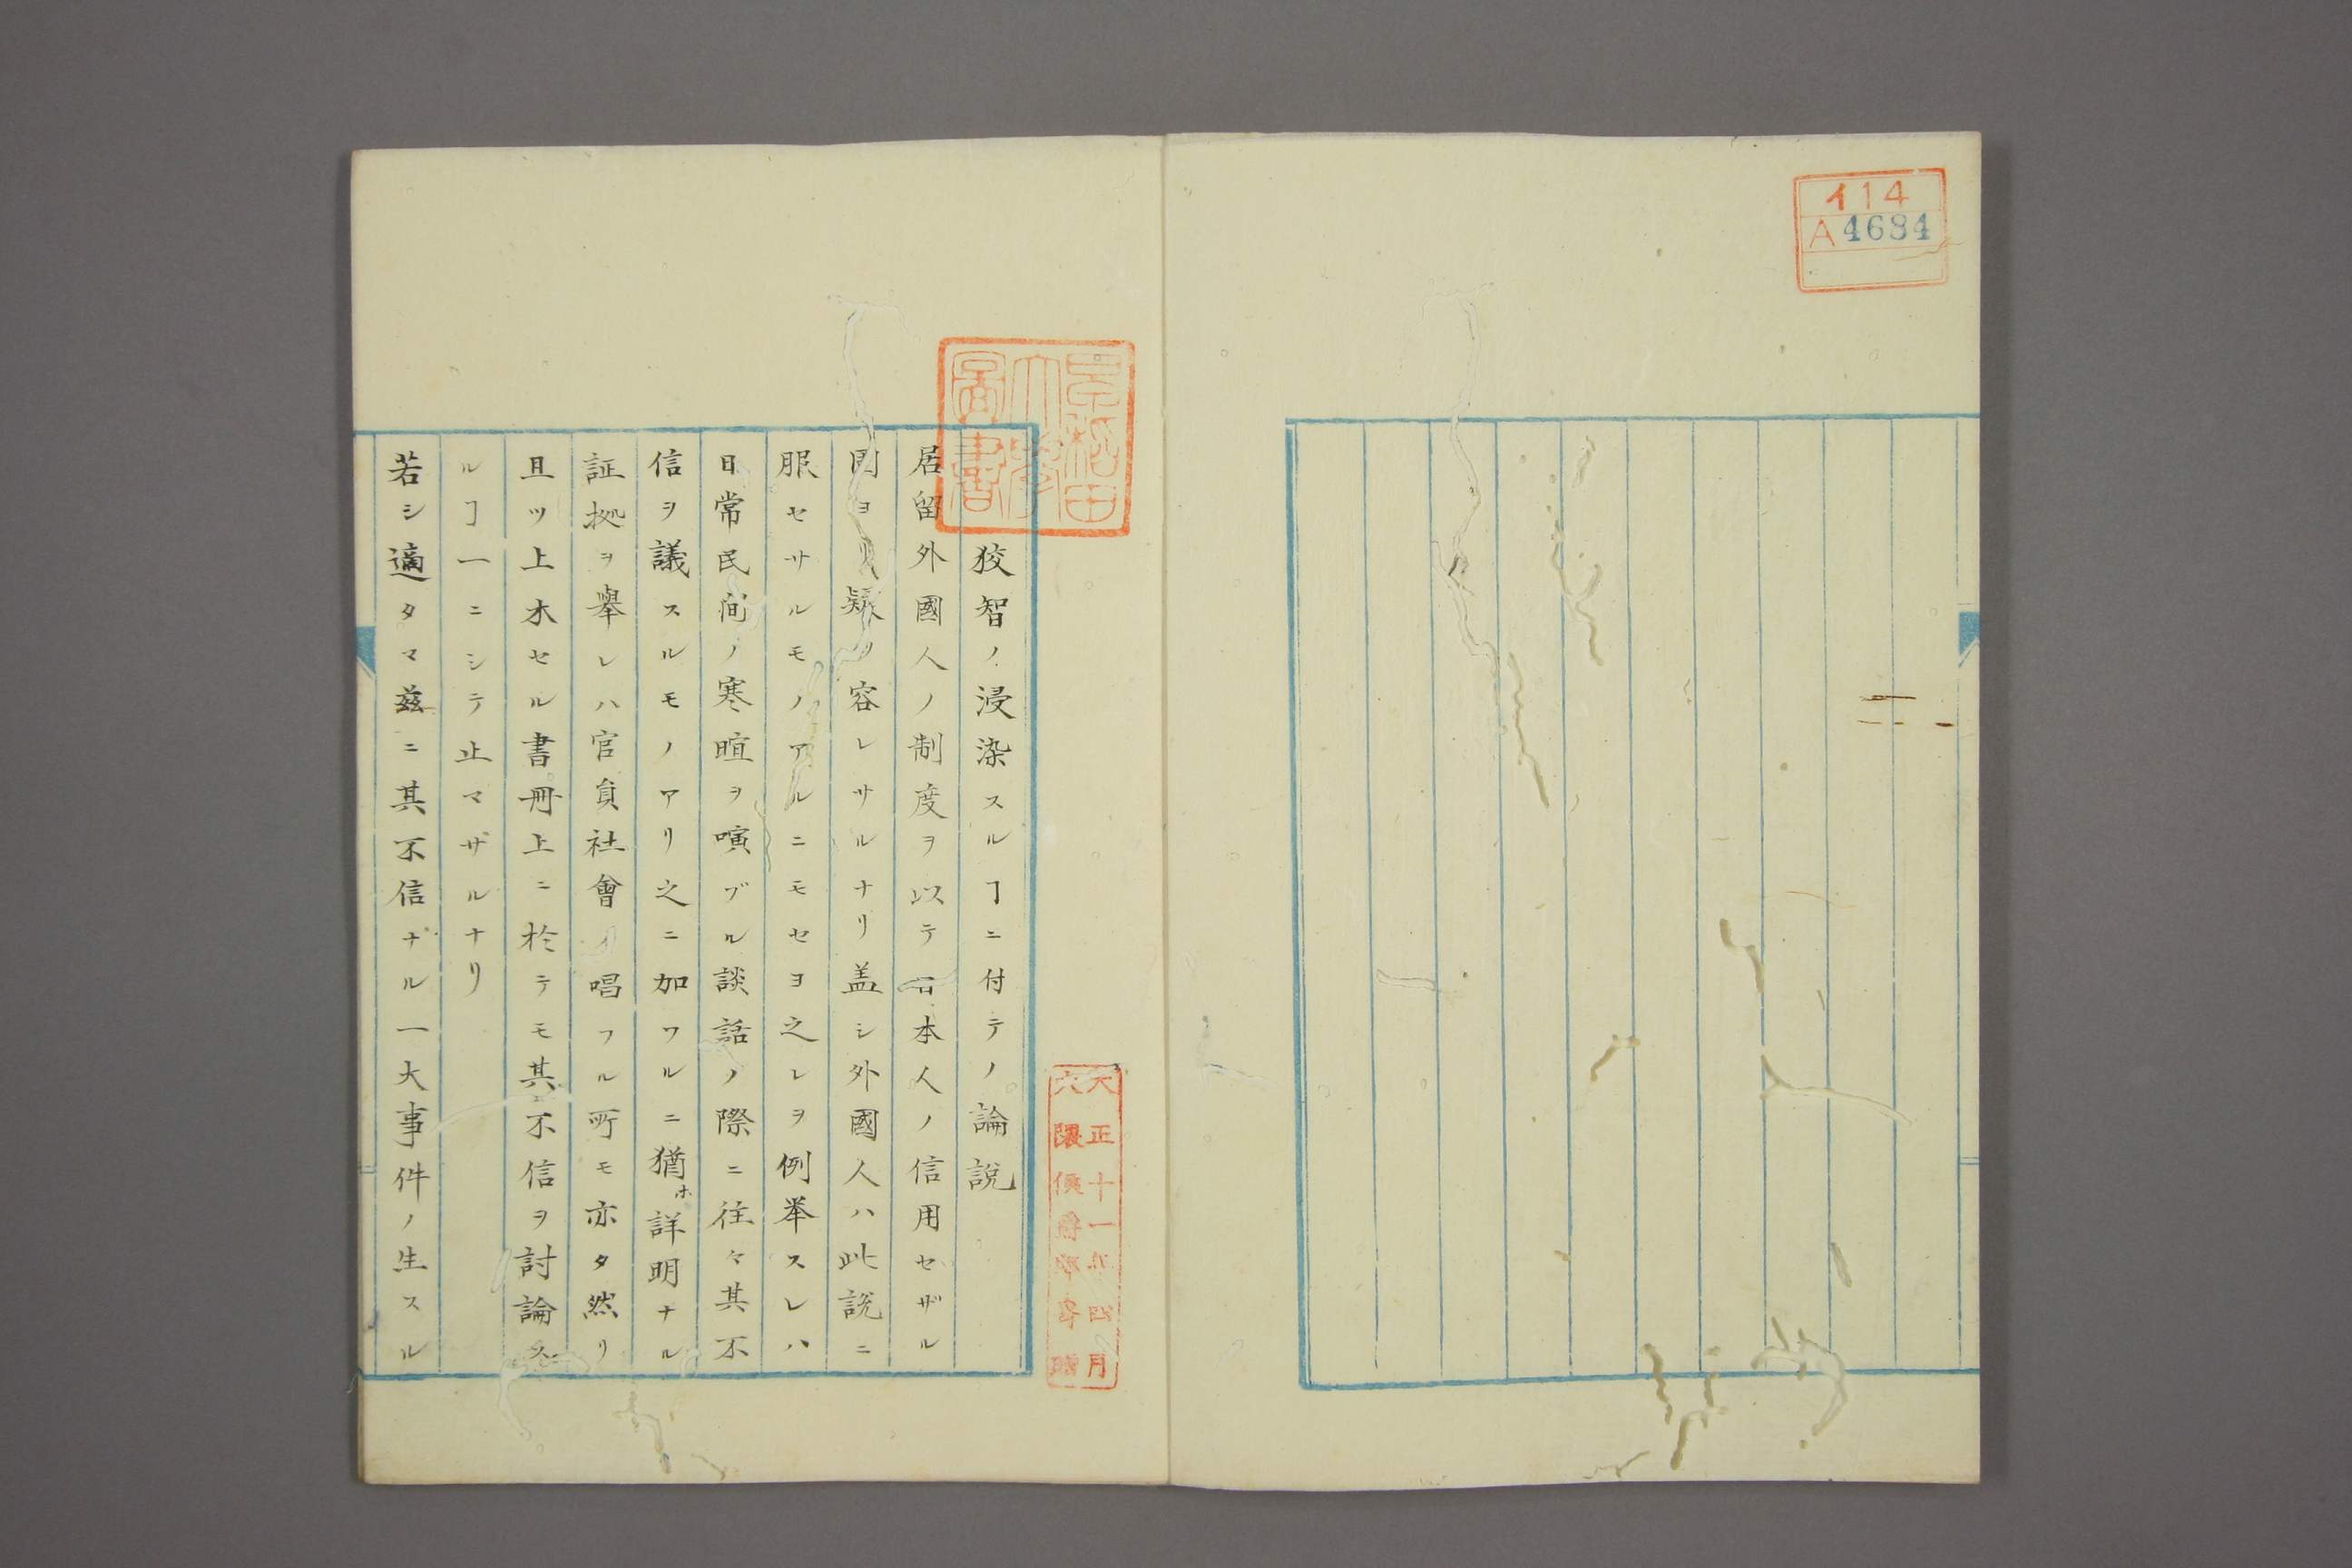 イ14
A4684
早稲田
大學
圖書
大正十一年四月
大隈侯爵家寄贈
狡智ノ浸染スルヿニ付テノ論説
居留外國人ノ制度ヲ以テ日本人ノ信用セザル
因ヨリ疑ヲ容レサルナリ盖シ外國人ハ此説ニ
服セサルモノアルニモセヨ之レヲ例举スレハ
日常民间ノ寒暄ヲ嚝ブル談話ノ際ニ往々其不
信ヲ議スルモノアリ之ニ加ワルニ猶ホ詳明ナル
証拠ヲ舉レハ官員社會ノ唱フル所モ亦タ然リ
且ツ上木セル書冊上ニ於テモ其不信ヲ討論ス
ルヿ一ニシテ止マザルナリ
若シ適タマ茲ニ其不信ナル一大事件ノ生スル